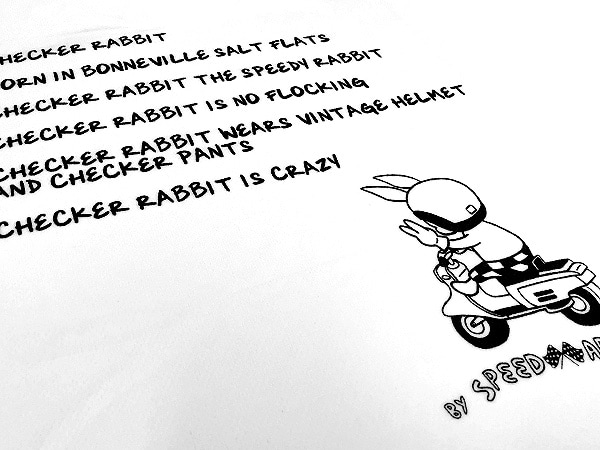 CHECKER RABBIT
BORN IN BONNEVILLE SALT FLATS
CHECKER RABBIT THE SPEEDY RABBIT
CHECKER RABBIT IS NO FLOCKING
CHECKER RABBIT WEARS VINTAGE HELMET
AND CHECKER PANTS
CHECKER RABBIT IS CRAZY
BY SPEED